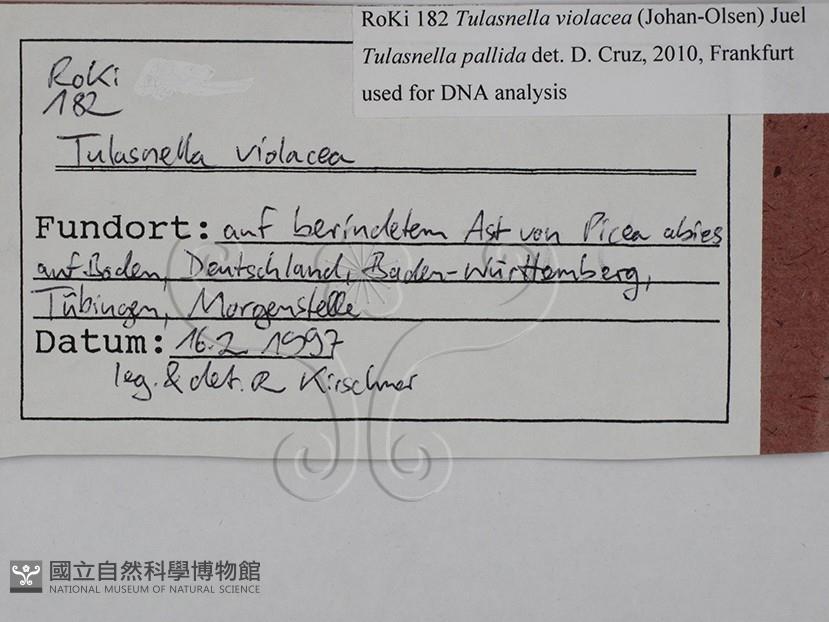 RoKi 182 Tulasnella violacea (Johan-Olsen) Juel
Tulasnella pallida det. D. Cruz, 2010, Frankfurt
used for DNA analysis
RoKi
182
Tulasnella violacea
Fundort: auf berindetem Ast von Picea abies
auf Boden, Deutschland, Baden-Württemberg,
Tübingen, Morgenstelle
Datum: 16.2 1997
leg. & det. R Kirschner
國立自然科學博物館
NATIONAL MUSEUM OF NATURAL SCIENCE